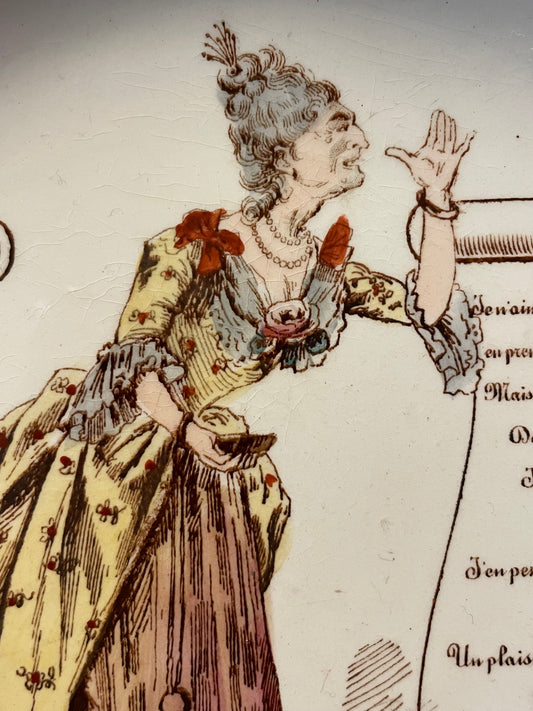 Je n'aim
en pren
Mais
De
J
J'en pens
Un plais